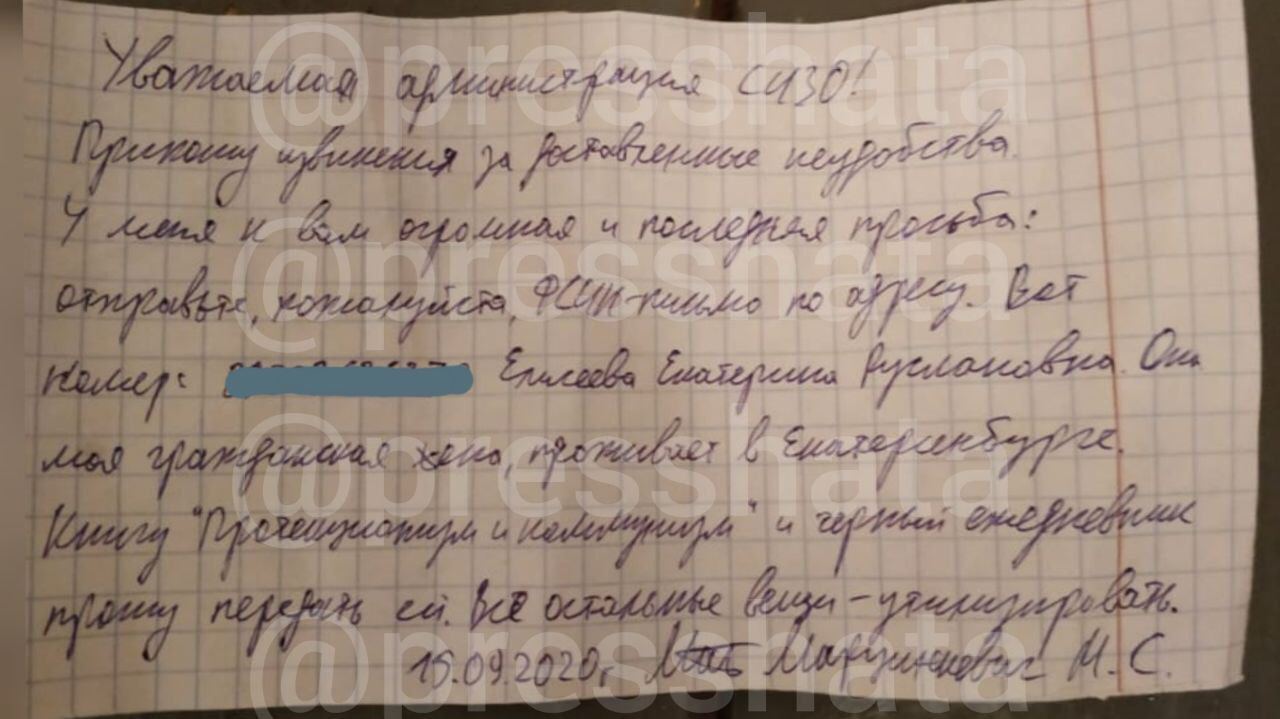 Уважаемая администрация СИЗО!
Приношу извинения за доставленные неудобства.
У меня к вам огромная и последняя просьба:
отправьте, пожалуйста, ФСИН-письмо по адресу. Вот
номер: Елисеева Екатерина Руслановна. Она
моя гражданская жена, проживает в Екатеринбурге.
Книгу "Протекционизм и коммунизм" и чёрный ежедневник
прошу передать ей. Всё остальные вещи – утилизировать.
15.09.2020г. Марцинкевич М. С.
@presshata
@presshata
@presshata
@presshata